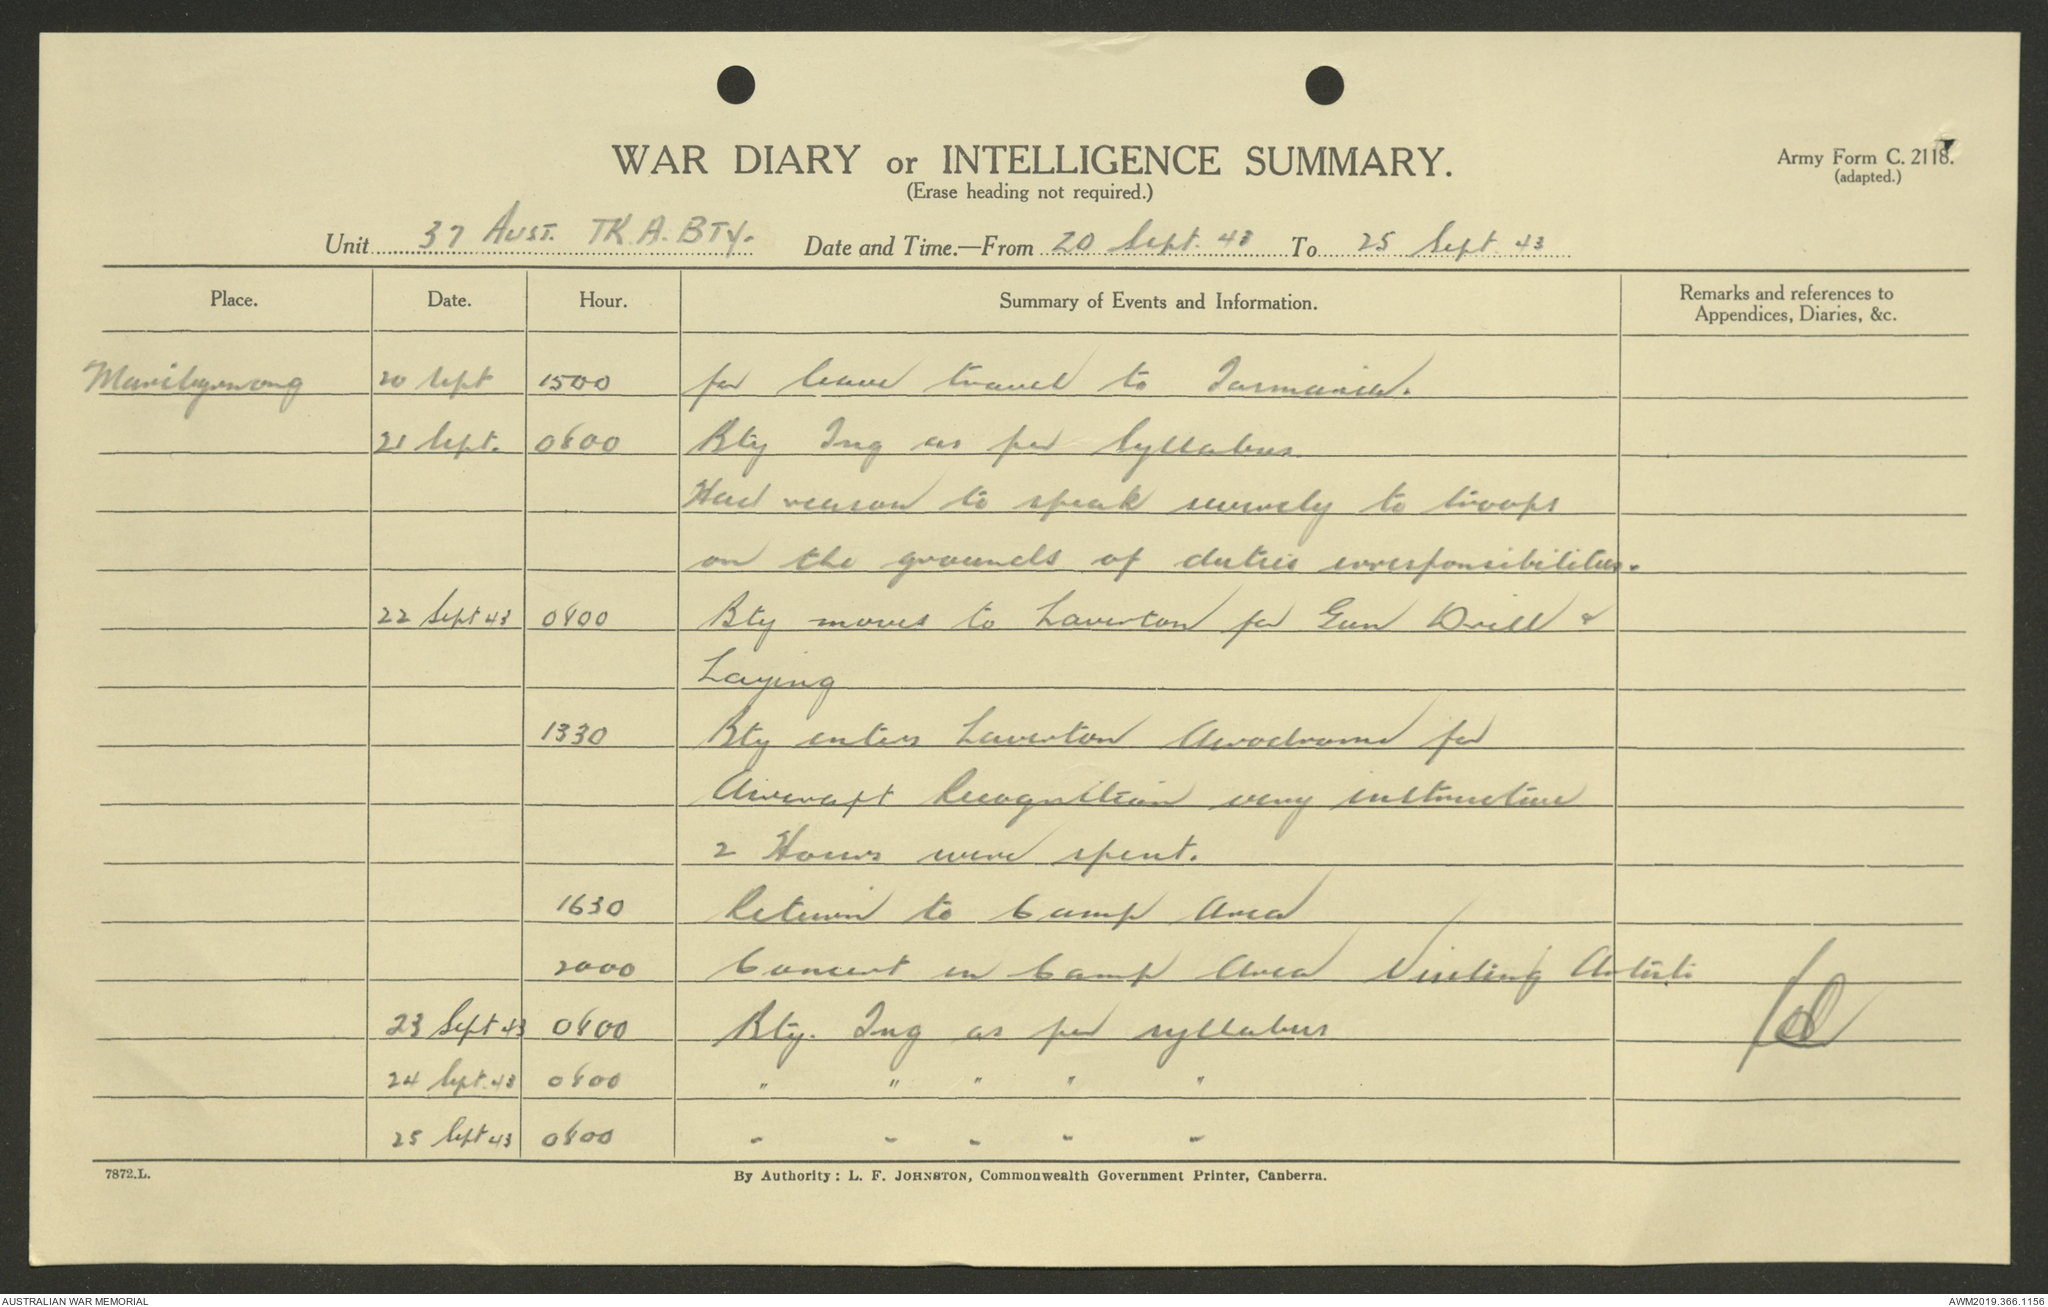 WAR DIARY or INTELLIGENCE SUMMARY.
Army Form C. 2118.
(adapted.)
(Erase heading not required.)
Unit 37 Aust. TK A. BTY. Date and Time.—From 20 Sept. 43 To 25 Sept. 43
Place. Date. Hour. Summary of Events and Information. Remarks and references to
Appendices, Diaries, &c.
Maribyrnong 20 Sept 1500 for leave travel to Tasmania.
21 Sept. 0800 Bty Tng as per Syllabus
Had reason to speak severely to troops
on the grounds of duties irresponsibilities.
22 Sept 43 0800 Bty moves to Laverton for Gun Drill &
Laying
1330 Bty enters Laverton Aerodrome for
Aircraft Recognition very instructive
2 Hours were spent.
1630 Return to Camp Area
2000 Concert in Camp Area Visiting Artists
23 Sept 43 0800 Bty. Tng as per syllabus
24 Sept. 43 0800 " " " " "
25 Sept 43 0800 " " " " "
7872.L. By Authority: L. F. JOHNSTON, Commonwealth Government Printer, Canberra.
AUSTRALIAN WAR MEMORIAL AWM2019.366.1156